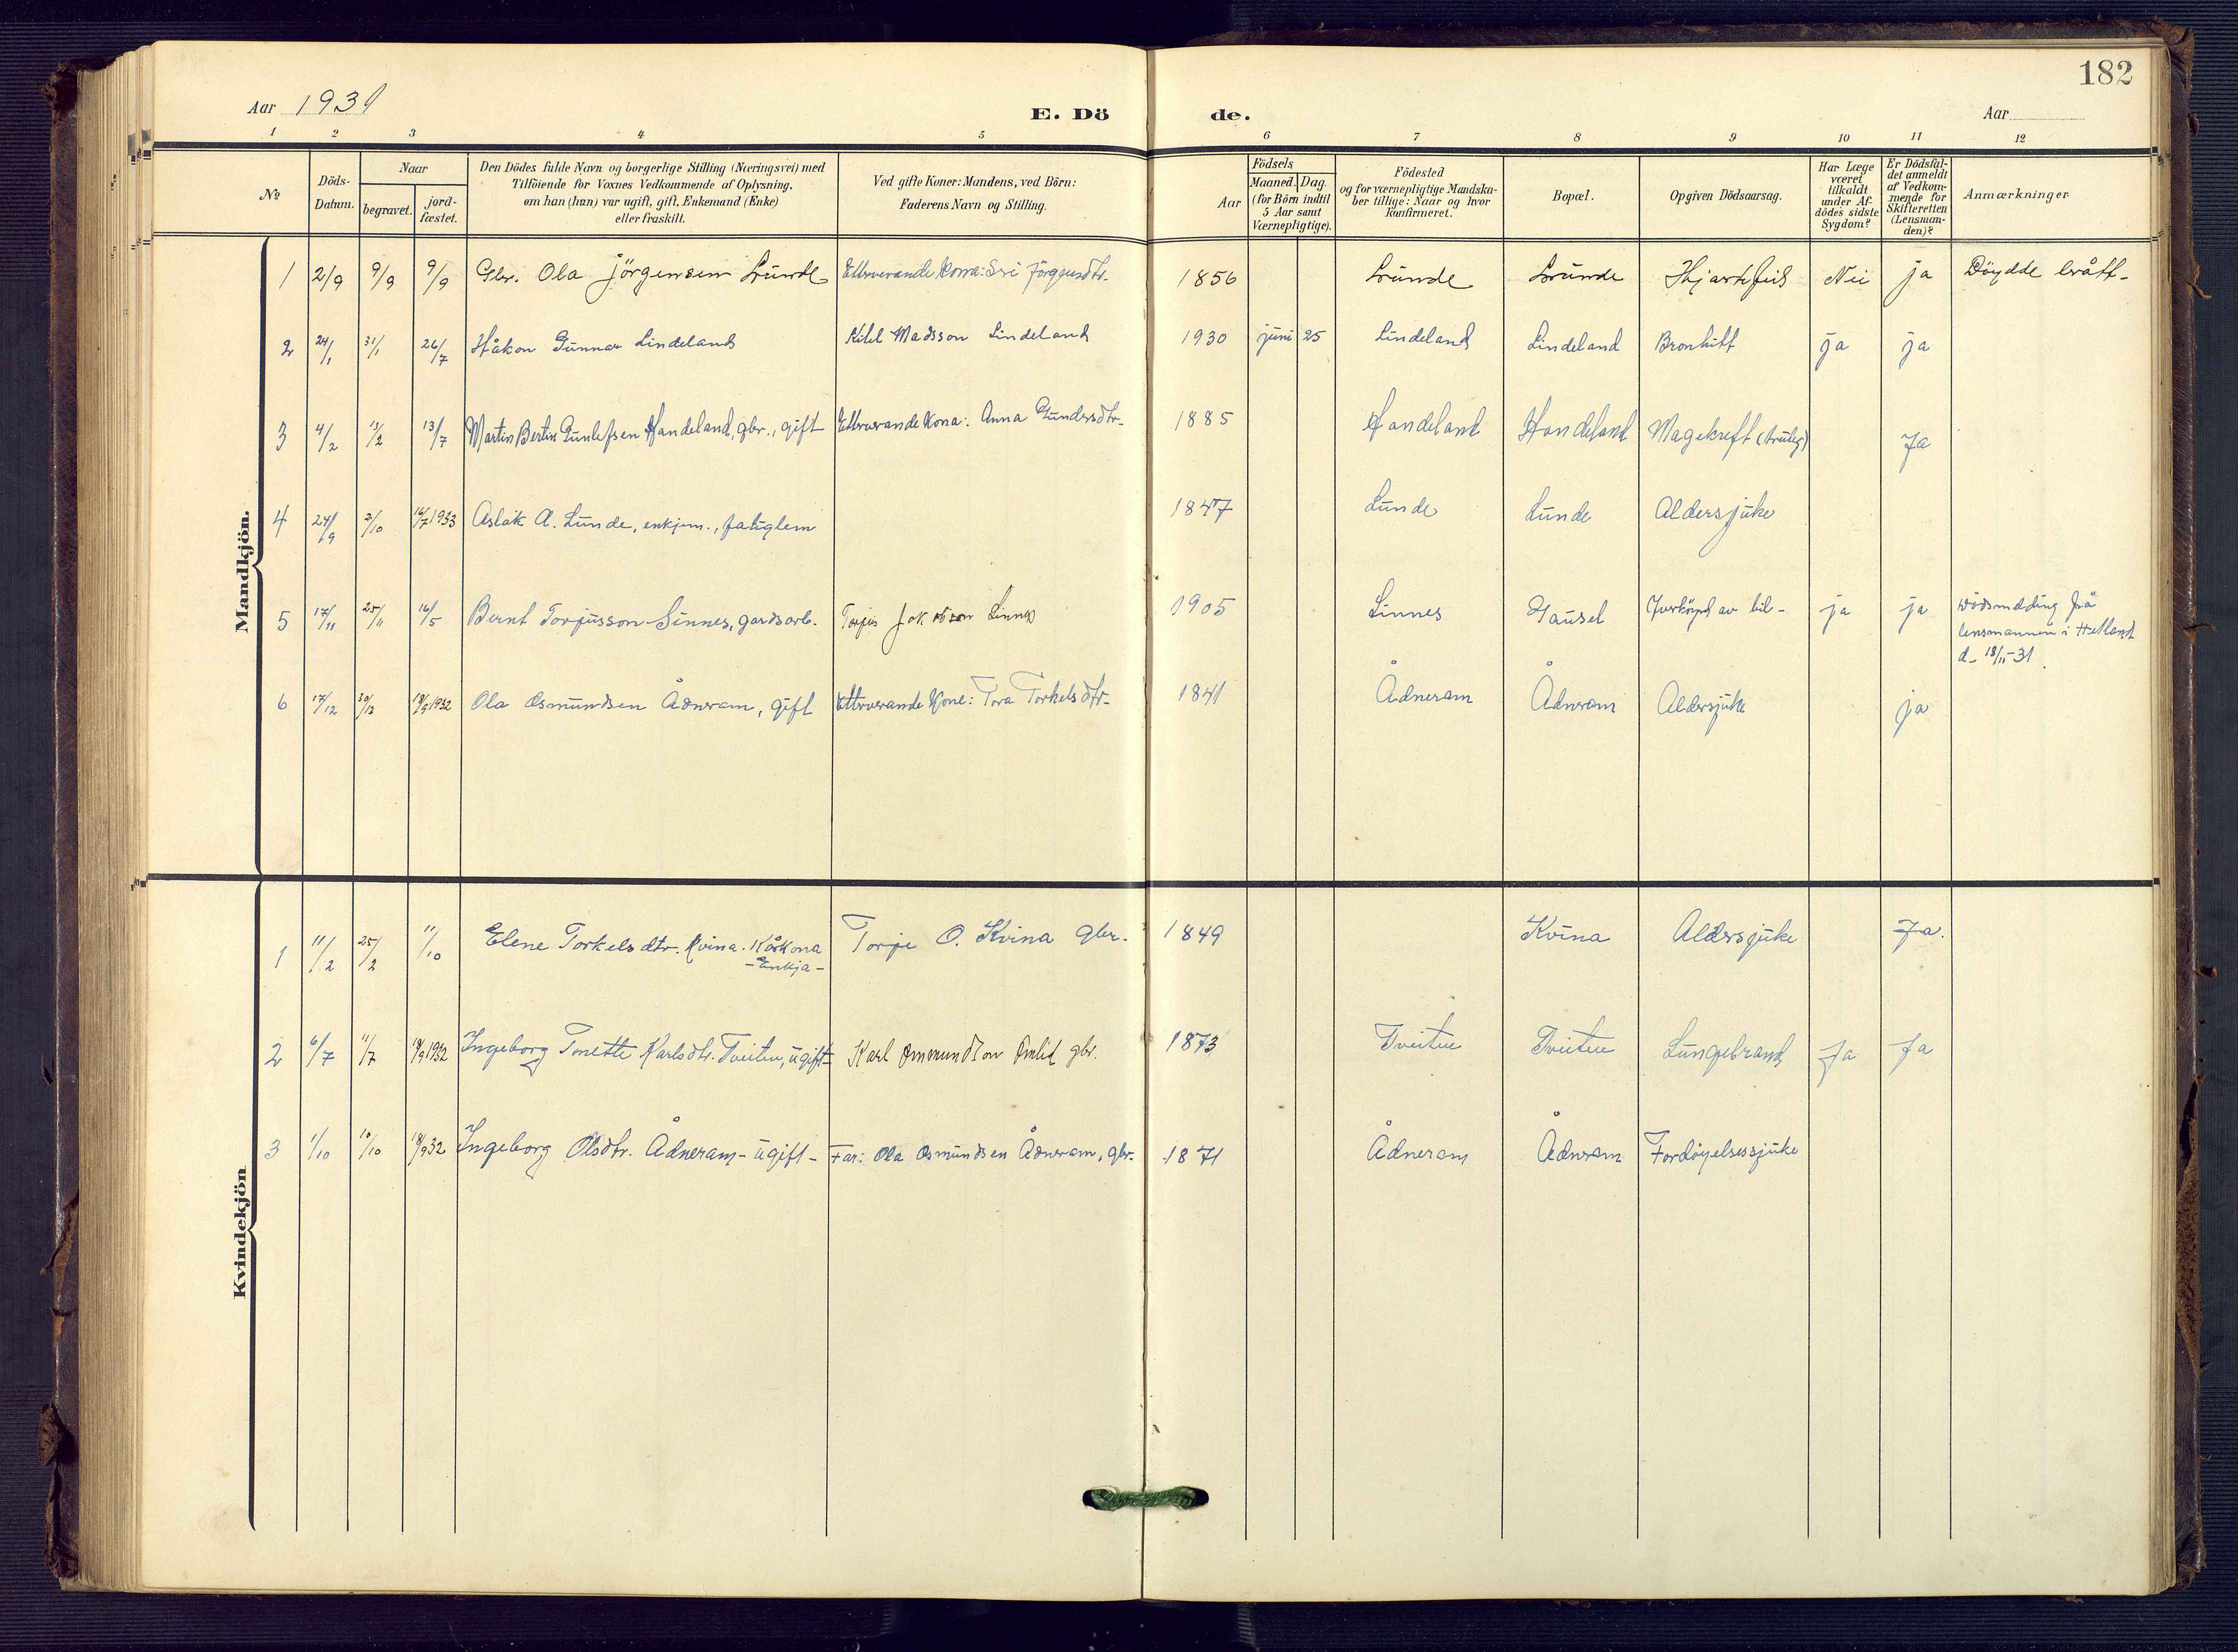 182
Aar 1931
E. Dö
de.
Aar
1 2 3 4 5 6 7 8 9 10 11 12
№
Döds-Datum.
Naar
begravet.
jord-fæstet.
Den Dödes fulde Navn og borgerlige Stilling (Næringsvei) med
Tilföiende for Voxnes Vedkommende af Oplysning,
om han (hun) var ugift, gift, Enkemand (Enke)
eller fraskilt.
Ved gifte Koner: Mandens, ved Börn:
Faderens Navn og Stilling.
Födsels
Aar
Maaned. Dag.
(for Börn indtil
5 Aar samt
Værnepligtige).
Födested
og for værnepligtige Mandska-
ber tillige: Naar og hvor
konfirmeret.
Bopæl.
Opgiven Dödsaarsag.
Har Læge
været
tilkaldt
under Af-
dödes sidste
Sygdom?
Er Dödsfal-
det anmeldt
af Vedkom-
mende for
Skifteretten
(Lensman-
den)?
Anmærkninger
Mandkjön.
1 2/9 9/9 9/9 Gbr. Ola Jörgensen Lunde Etterverande kona: Siri Jörgensdtr. 1856 Lunde Lunde Hjartefeil Nei ja Döydde brått-
2 24/1 31/1 26/7 Håkon Gunnar Lindeland Kitel Madsson Lindeland 1930 juni 25 Lindeland Lindeland Bronkitt ja ja
3 4/2 13/2 13/7 Martin Bertin Gunlefsen Handeland, gbr., gift Etterverande Kona: Anna Gundersdtr. 1885 Handeland Handeland Magekreft (truleg) Ja
4 24/9 2/10 16/7 1933 Aslak A. Lunde, enkjem., fatiglem 1847 Lunde Lunde Aldersjuke
5 17/11 25/11 16/5 Bernt Torjusson Sinnes, gardsarb. Torjus Jakobson Sinnes 1905 Sinnes Gausel Yverköyrd av bil- ja ja Dödsmelding frå
lensmannen i Hetland
d. 18/11-31.
6 17/12 30/12 18/9 1932 Ola Osmundsen Ådneram, gift Etterverande Kone: Tora Torkelsdtr. 1841 Ådneram Ådneram Aldersjuke ja
Kvindekjön
1 11/2 25/2 11/10 Elene Torkelsdtr. Kvina. Kårkona Torje O. Kvina gbr. 1849 Kvina Aldersjuke Ja.
-Enkja-
2 6/7 11/7 18/9 1932 Ingeborg Tonette Karlsdtr. Tveiten, ugift- Karl Ommundson Omlid gbr. 1873 Tveiten Tveiten Lungebrand Ja Ja
3 1/10 10/10 18/9 32 Ingeborg Olsdtr. Ådneram- ugift- Far: Ola Osmundsen Ådneram, gbr. 1871 Ådneram Ådneram Fordöyelsessjuke